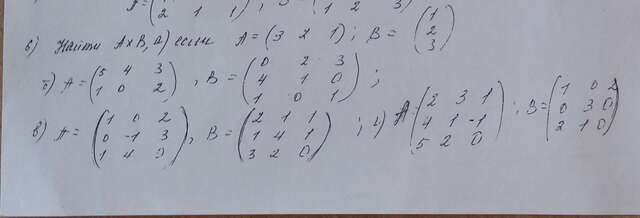 A = ( ; B = (
2 1 1 1 2 3
в) Найти A×B, а) если A = (3 2 1) ; B = (1
2
3)
б) A = (5 4 3
1 0 2) , B = (0 2 3
4 1 0
1 0 1) ;
в) A = (1 0 2
0 -1 3
1 4 0) , B = (2 1 1
1 4 1
3 2 0) ; г) A = (2 3 1
4 1 -1
5 2 0) ; B = (1 0 2
0 3 0
2 1 0)